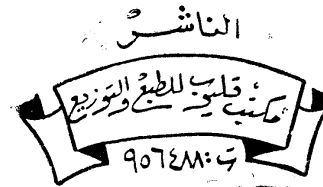 الناشر
مكتب قليوب للطبع والتوزيع
ت: ٩٥٦٤٨٨